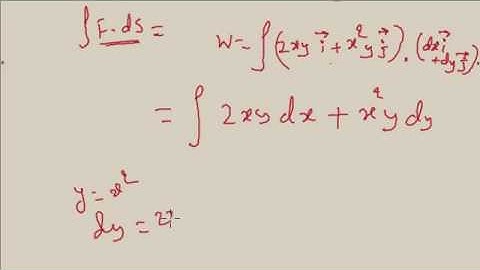 ∫ F. ds =
W = ∫ (2xy i⃗ + x²y j⃗) . (dx i⃗ + dy j⃗)
= ∫ 2xy dx + x²y dy
y = x²
dy = 2